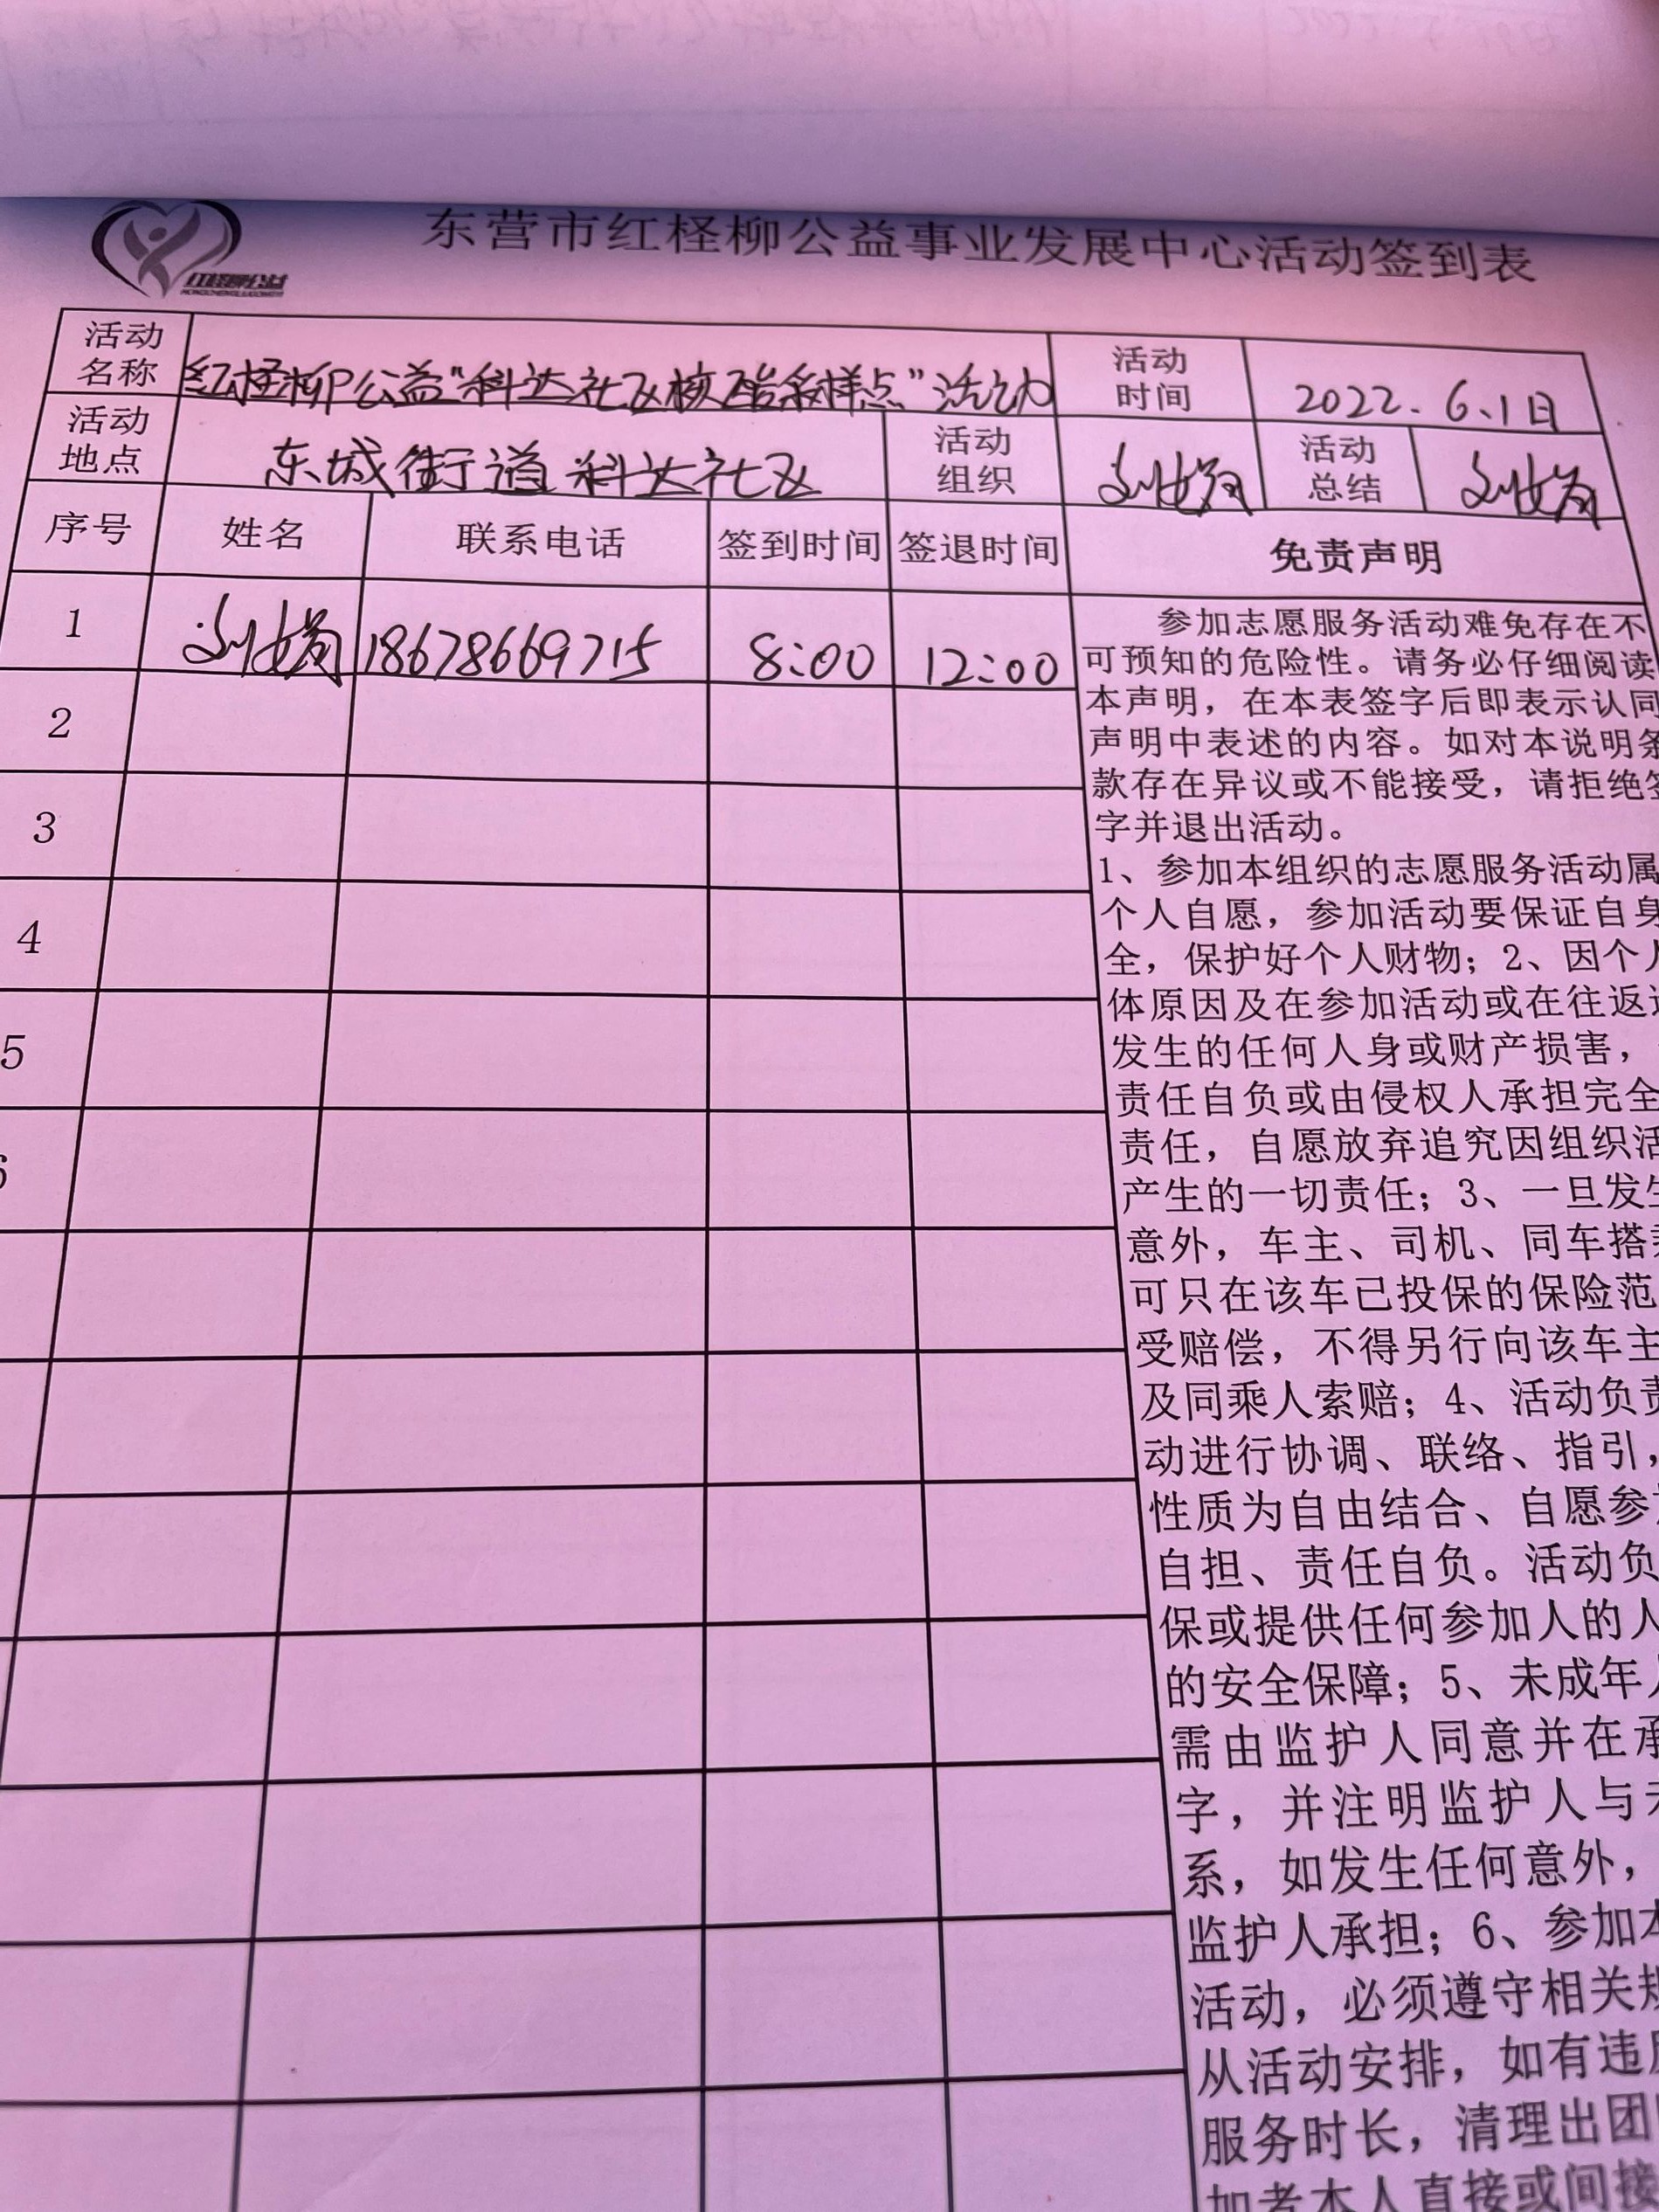 东营市红柽柳公益事业发展中心活动签到表
红柽柳公益
HONGCHENGLIUGONGYI
活动名称 红柽柳公益“科达社区核酸采样点”活动 活动时间 2022.6.1日
活动地点 东城街道科达社区 活动组织 刘 活动总结 刘
序号 姓名 联系电话 签到时间 签退时间 免责声明
1 刘 18678669715 8:00 12:00
2
3
4
5
6
参加志愿服务活动难免存在不
可预知的危险性。请务必仔细阅读
本声明，在本表签字后即表示认同
声明中表述的内容。如对本说明条
款存在异议或不能接受，请拒绝签
字并退出活动。
1、参加本组织的志愿服务活动属
个人自愿，参加活动要保证自身
全，保护好个人财物；2、因个人
体原因及在参加活动或在往返途
发生的任何人身或财产损害，
责任自负或由侵权人承担完全
责任，自愿放弃追究因组织活
产生的一切责任；3、一旦发生
意外，车主、司机、同车搭乘
可只在该车已投保的保险范
受赔偿，不得另行向该车主
及同乘人索赔；4、活动负责
动进行协调、联络、指引，
性质为自由结合、自愿参加
自担、责任自负。活动负
保或提供任何参加人的人
的安全保障；5、未成年人
需由监护人同意并在承
字，并注明监护人与未
系，如发生任何意外，
监护人承担；6、参加本
活动，必须遵守相关规
从活动安排，如有违反
服务时长，清理出团队
加者本人直接或间接